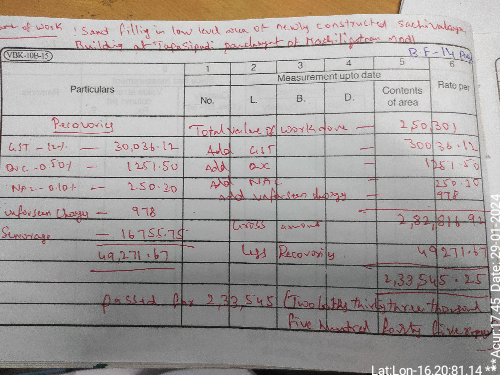 of work : Sand filling in low level area of newly constructed sachivalayam
Building at panchayat of Machilipatnam Mndl
VBK-10B-15
Particulars
1 2 3 4 5 6
Measurement upto date
No. L. B. D. Contents of area Rate per
Recoveries
Total value of work done — 2,50,301
GST - 12% — 30,036.12 Add GST — 30036.12
QvC - 0.50% — 1251.50 Add QvC — 1251.50
NAC - 0.10% — 250.20 Add NAC — 250.30
unforseen charges — 978 Add unforseen charges — 978
Gross amount 2,82,816.92
Senorage — 16755.75
49,271.67 Less Recovery 49271.67
2,33,545.25
passed for 2,33,545 (Two lakhs thirty three thousand
five hundred forty five
Lat:Lon-16.20:81.14 ** Acur:17.45 ** Date: 29-01-2024